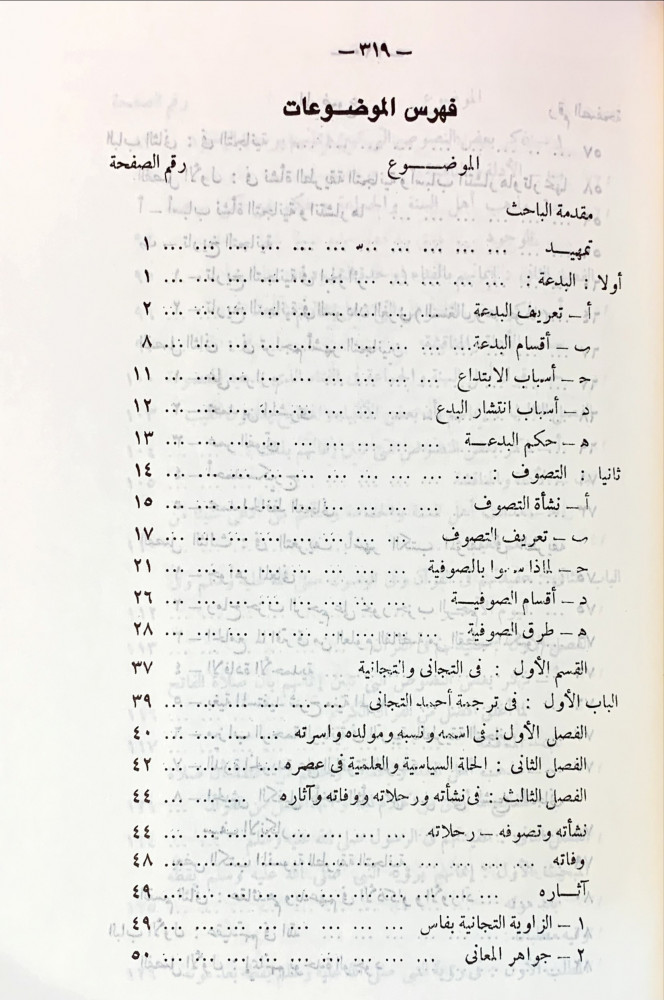 — ٣١٩ —
فهرس الموضـوعات
الموضـــوع رقم الصفحة
مقدمة الباحث
تمهيد ... ... ... ... ... ... ... ... ... ١
أولا : البدعة : ... ... ... ... ... ... ... ... ... ١
أ — تعريف البدعة ... ... ... ... ... ... ... ... ٢
ب — أقسام البدعة ... ... ... ... ... ... ... ... ٨
ج — أسباب الابتداع ... ... ... ... ... ... ... ... ١١
د — أسباب انتشار البدع ... ... ... ... ... ... ... ١٢
ه — حكم البدعــة ... ... ... ... ... ... ... ... ١٣
ثانيا : التصوف : ... ... ... ... ... ... ... ... ١٤
أ — نشأة التصوف ... ... ... ... ... ... ... ... ١٥
ب — تعريف التصوف ... ... ... ... ... ... ... ١٧
ج — لماذا سموا بالصوفية ... ... ... ... ... ... ... ٢١
د — أقسام الصوفيــة ... ... ... ... ... ... ... ٢٦
ه — طرق الصوفية ... ... ... ... ... ... ... ... ٢٨
القسم الأول : فى التجانى والتجانية ... ... ... ... ... ٣٧
الباب الأول : فى ترجمة أحمد التجانى ... ... ... ... ... ٣٩
الفصل الأول : فى اسمه ونسبه ومولده واسرته ... ... ... ... ٤٠
الفصل الثانى : الحالة السياسية والعلمية فى عصره ... ... ... ... ٤٢
الفصل الثالث : فى نشأته ورحلاته ووفاته وآثاره ... ... ... ٤٤
نشأته وتصوفه — رحلاته ... ... ... ... ... ... ... ٤٤
وفاته ... ... ... ... ... ... ... ... ... ٤٨
آثــاره ... ... ... ... ... ... ... ... ... ٤٩
١ — الزاوية التجانية بفاس ... ... ... ... ... ... ... ٤٩
٢ — جواهر المعانى ... ... ... ... ... ... ... ... ٥٠